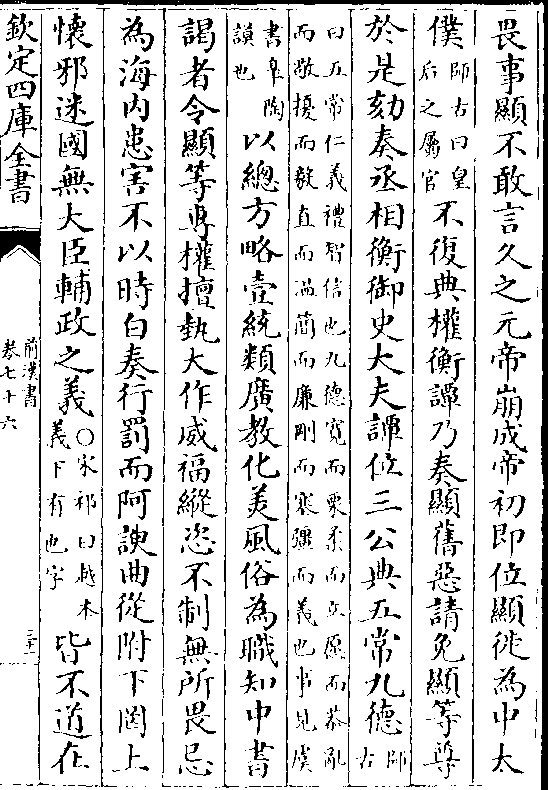 畏事顯不敢言久之元帝崩成帝初即位顯徙為中太
僕師古曰皇后之屬官不復典權衡譚乃奏顯舊惡請免顯等尊
於是劾奏丞相衡御史大夫譚位三公典五常九德師古
曰五常仁義禮智信也九德寬而栗柔而立愿而恭亂
而敬擾而毅直而温簡而廉剛而塞彊而義也事見虞
書臯陶謨也以總方略壹統類廣教化美風俗為職知中書
謁者令顯等專權擅埶大作威福縱恣不制無所畏忌
為海内患害不以時白奏行罰而阿諛曲從附下罔上
懷邪迷國無大臣輔政之義○宋祁曰越本義下有也字皆不道在
欽定四庫全書
前漢書
卷七十六